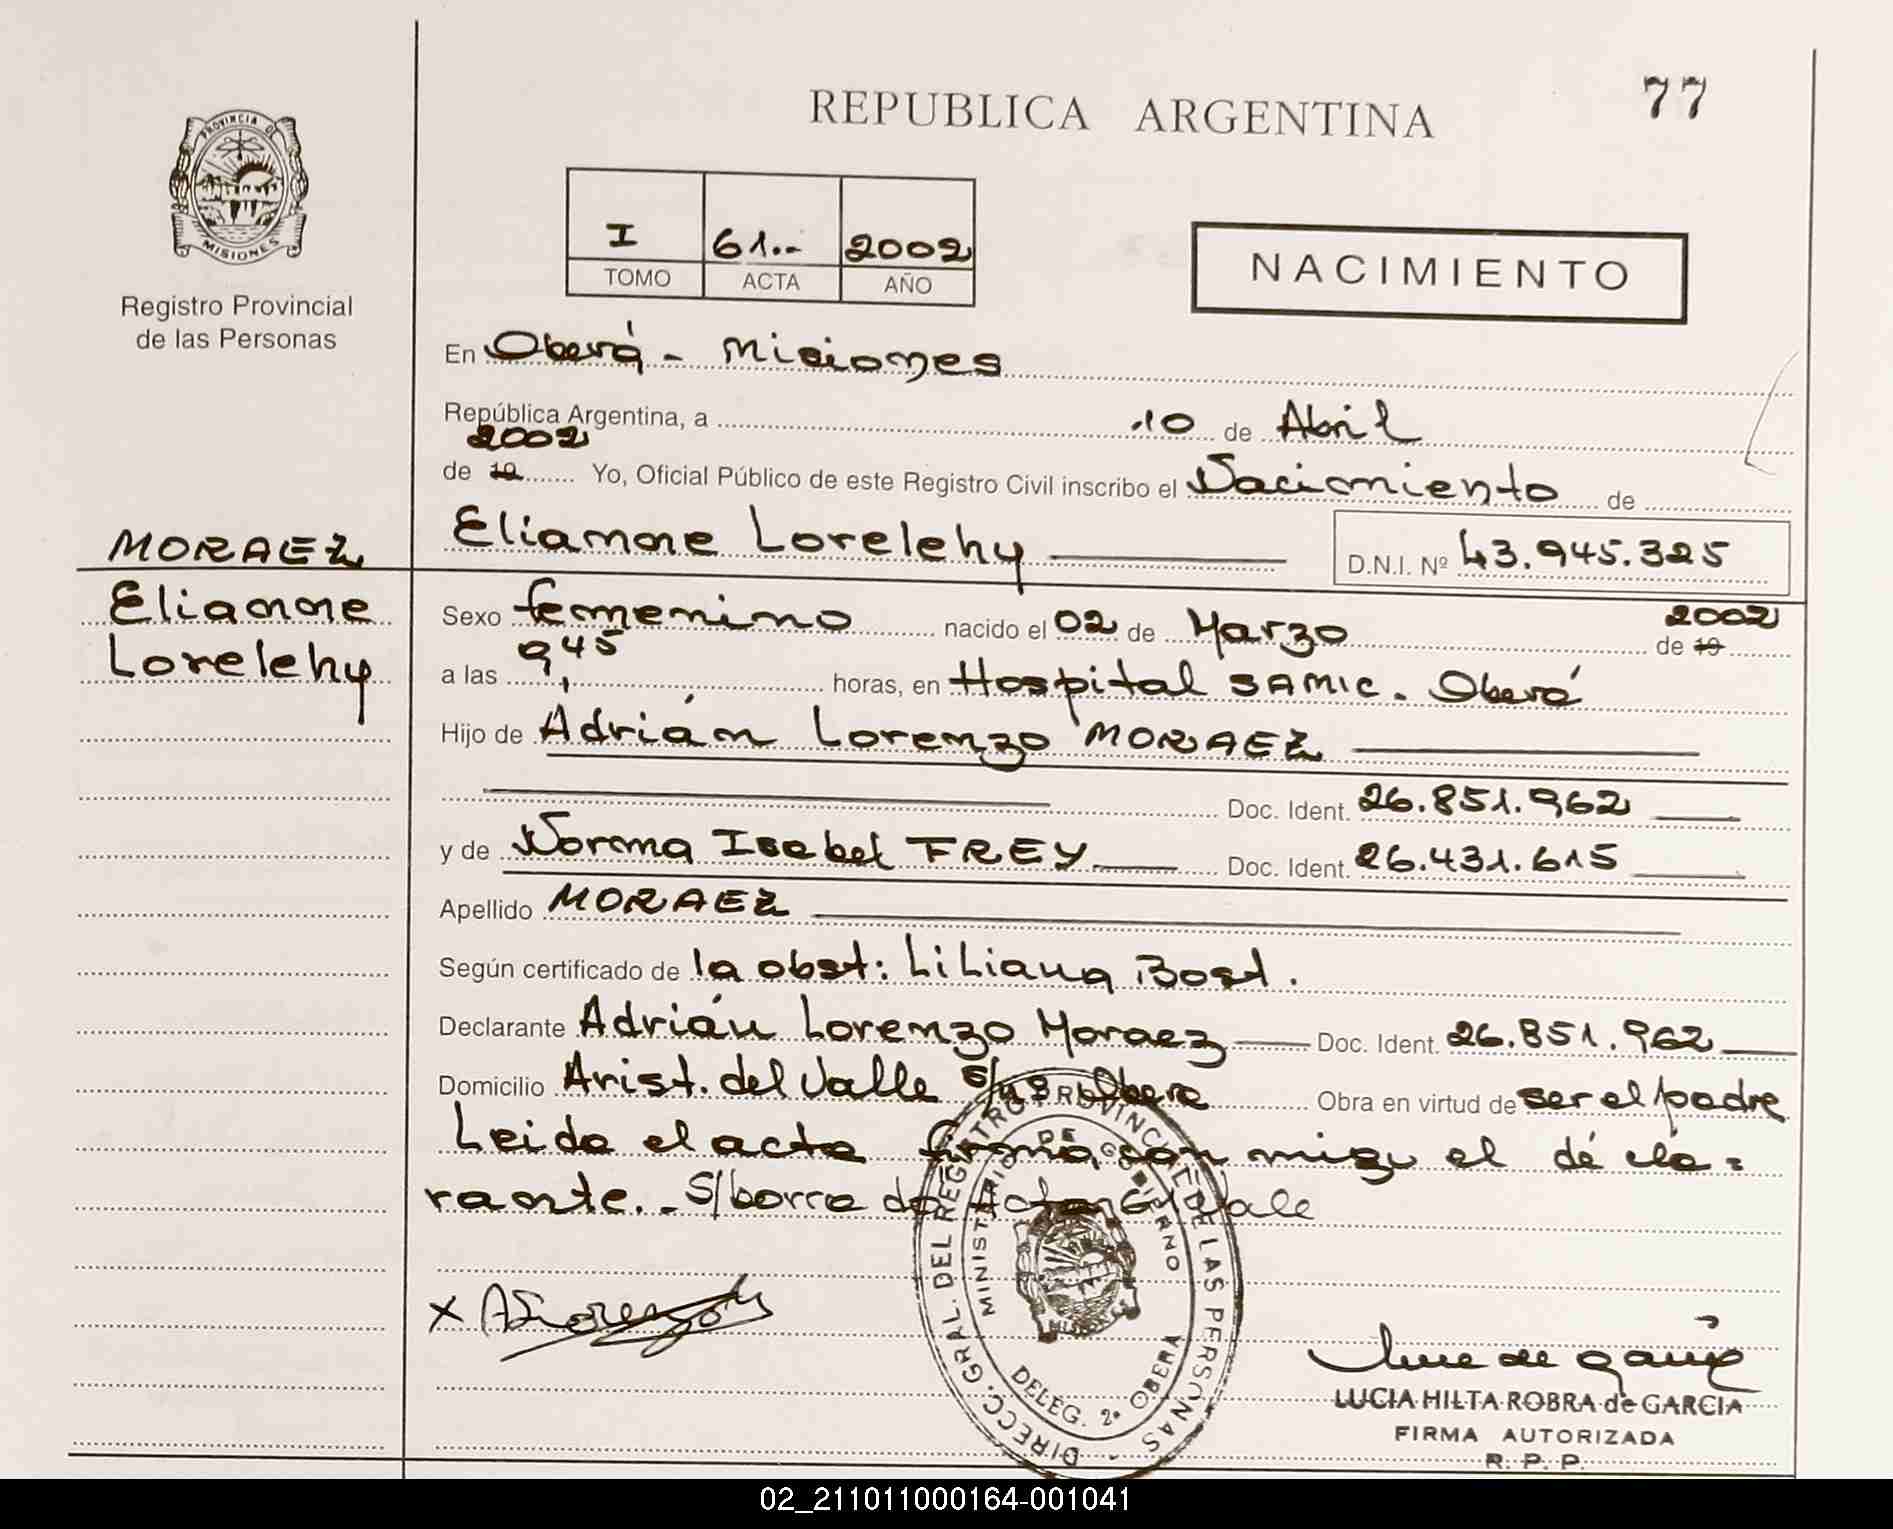 77
REPUBLICA ARGENTINA
PROVINCIA DE
MISIONES
Registro Provincial
de las Personas
I 61.- 2002
TOMO ACTA AÑO
NACIMIENTO
En Oberá - Misiones
República Argentina, a 10 de Abril
2002
de 19 Yo, Oficial Público de este Registro Civil inscribo el Nacimiento de
MORAEZ
Elianne
Lorelehy
Elianne Lorelehy D.N.I. Nº 43.945.325
Sexo femenino nacido el 02 de Marzo de 19 2002
a las 9,45 horas, en Hospital SAMIC. Oberá
Hijo de Adrián Lorenzo MORAEZ
Doc. Ident. 26.851.962
y de Norma Isabel FREY Doc. Ident. 26.431.615
Apellido MORAEZ
Según certificado de la obst: Liliana Bost.
Declarante Adrián Lorenzo Moraez Doc. Ident. 26.851.962
Domicilio Arist. del Valle s/nº Oberá Obra en virtud de ser el padre
Leida el acta firma con migo el de cla-
rante.- S/borra do Vale
DIRECC. GRAL. DEL REGISTRO PROVINCIAL DE LAS PERSONAS
MINISTERIO DE GOBIERNO
MISIONES
DELEG. 2ª OBERA
LUCIA HILTA ROBRA de GARCIA
FIRMA AUTORIZADA
R. P. P.
02_211011000164-001041